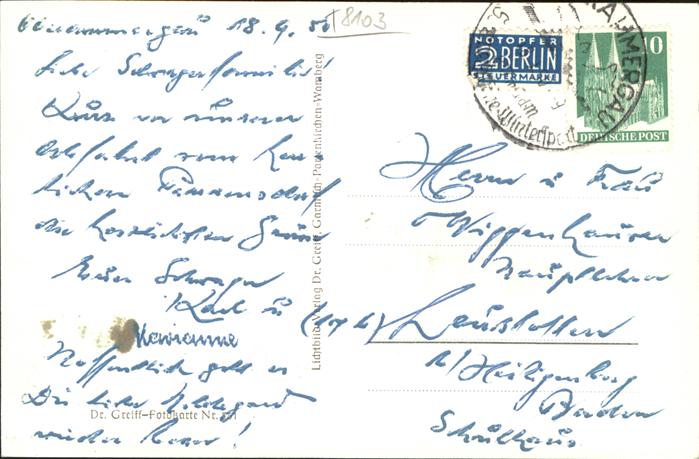 Oberammergau 18.9.50
8103
Liebe Schwagerfamilie!
Kurz vor unserer
Abfahrt vom herr-
lichen Passionsdorf
die herzlichsten Grüsse
Euer Schwager
Karl u
Marianne
Hoffentlich geht es
Dir liebe Hildegard
wieder besser!
Dr. Greiff-Fotokarte Nr.
Lichtbildverlag Dr. Greiff, Garmisch-Partenkirchen-Wamberg
NOTOPFER
2 BERLIN
STEUERMARKE
10
DEUTSCHE POST
RAMMERGAU
Wintersport
Herrn u Frau
Wiggenhauser
Hauptlehrer
Leustetten
b/Heiligenberg
Baden
Schulhaus